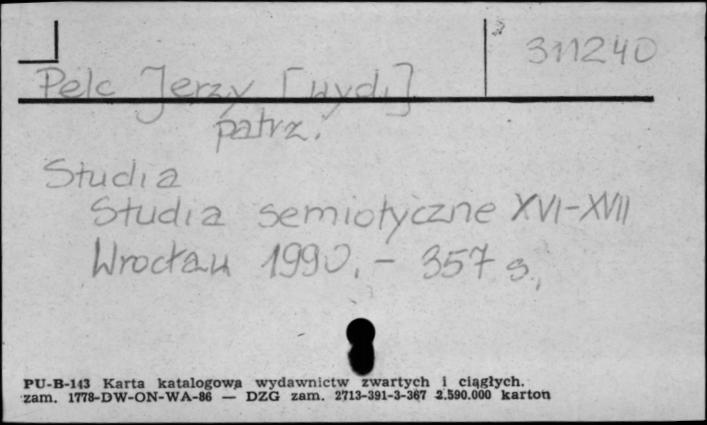 311240
Pelc Jerzy [wyd.]
patrz.
Studia
Studia semiotyczne XVI-XVII
Wrocław 1990. - 357 s.,
PU-B-143 Karta katalogowa wydawnictw zwartych i ciągłych.
zam. 1778-DW-ON-WA-86 — DZG zam. 2713-391-3-367 2.590.000 karton